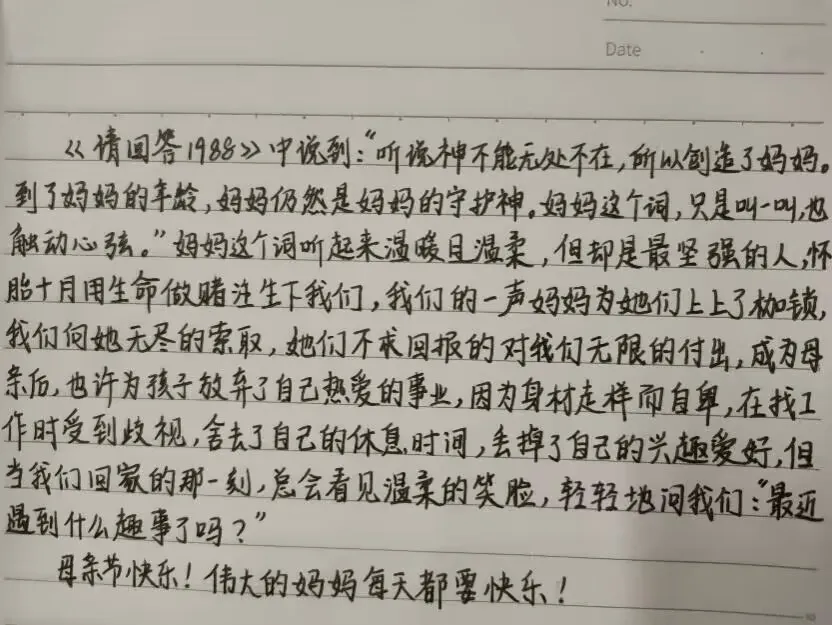 No.
Date
《请回答1988》中说到:“听说神不能无处不在,所以创造了妈妈。
到了妈妈的年龄,妈妈仍然是妈妈的守护神。妈妈这个词,只是叫一叫,也
触动心弦。”妈妈这个词听起来温暖且温柔,但却是最坚强的人,怀
胎十月用生命做赌注生下我们,我们的一声妈妈为她们上上了枷锁,
我们向她无尽的索取,她们不求回报的对我们无限的付出,成为母
亲后,也许为孩子放弃了自己热爱的事业,因为身材走样而自卑,在找工
作时受到歧视,舍去了自己的休息时间,丢掉了自己的兴趣爱好,但
当我们回家的那一刻,总会看见温柔的笑脸,轻轻地问我们:“最近
遇到什么趣事了吗?”
母亲节快乐!伟大的妈妈每天都要快乐!